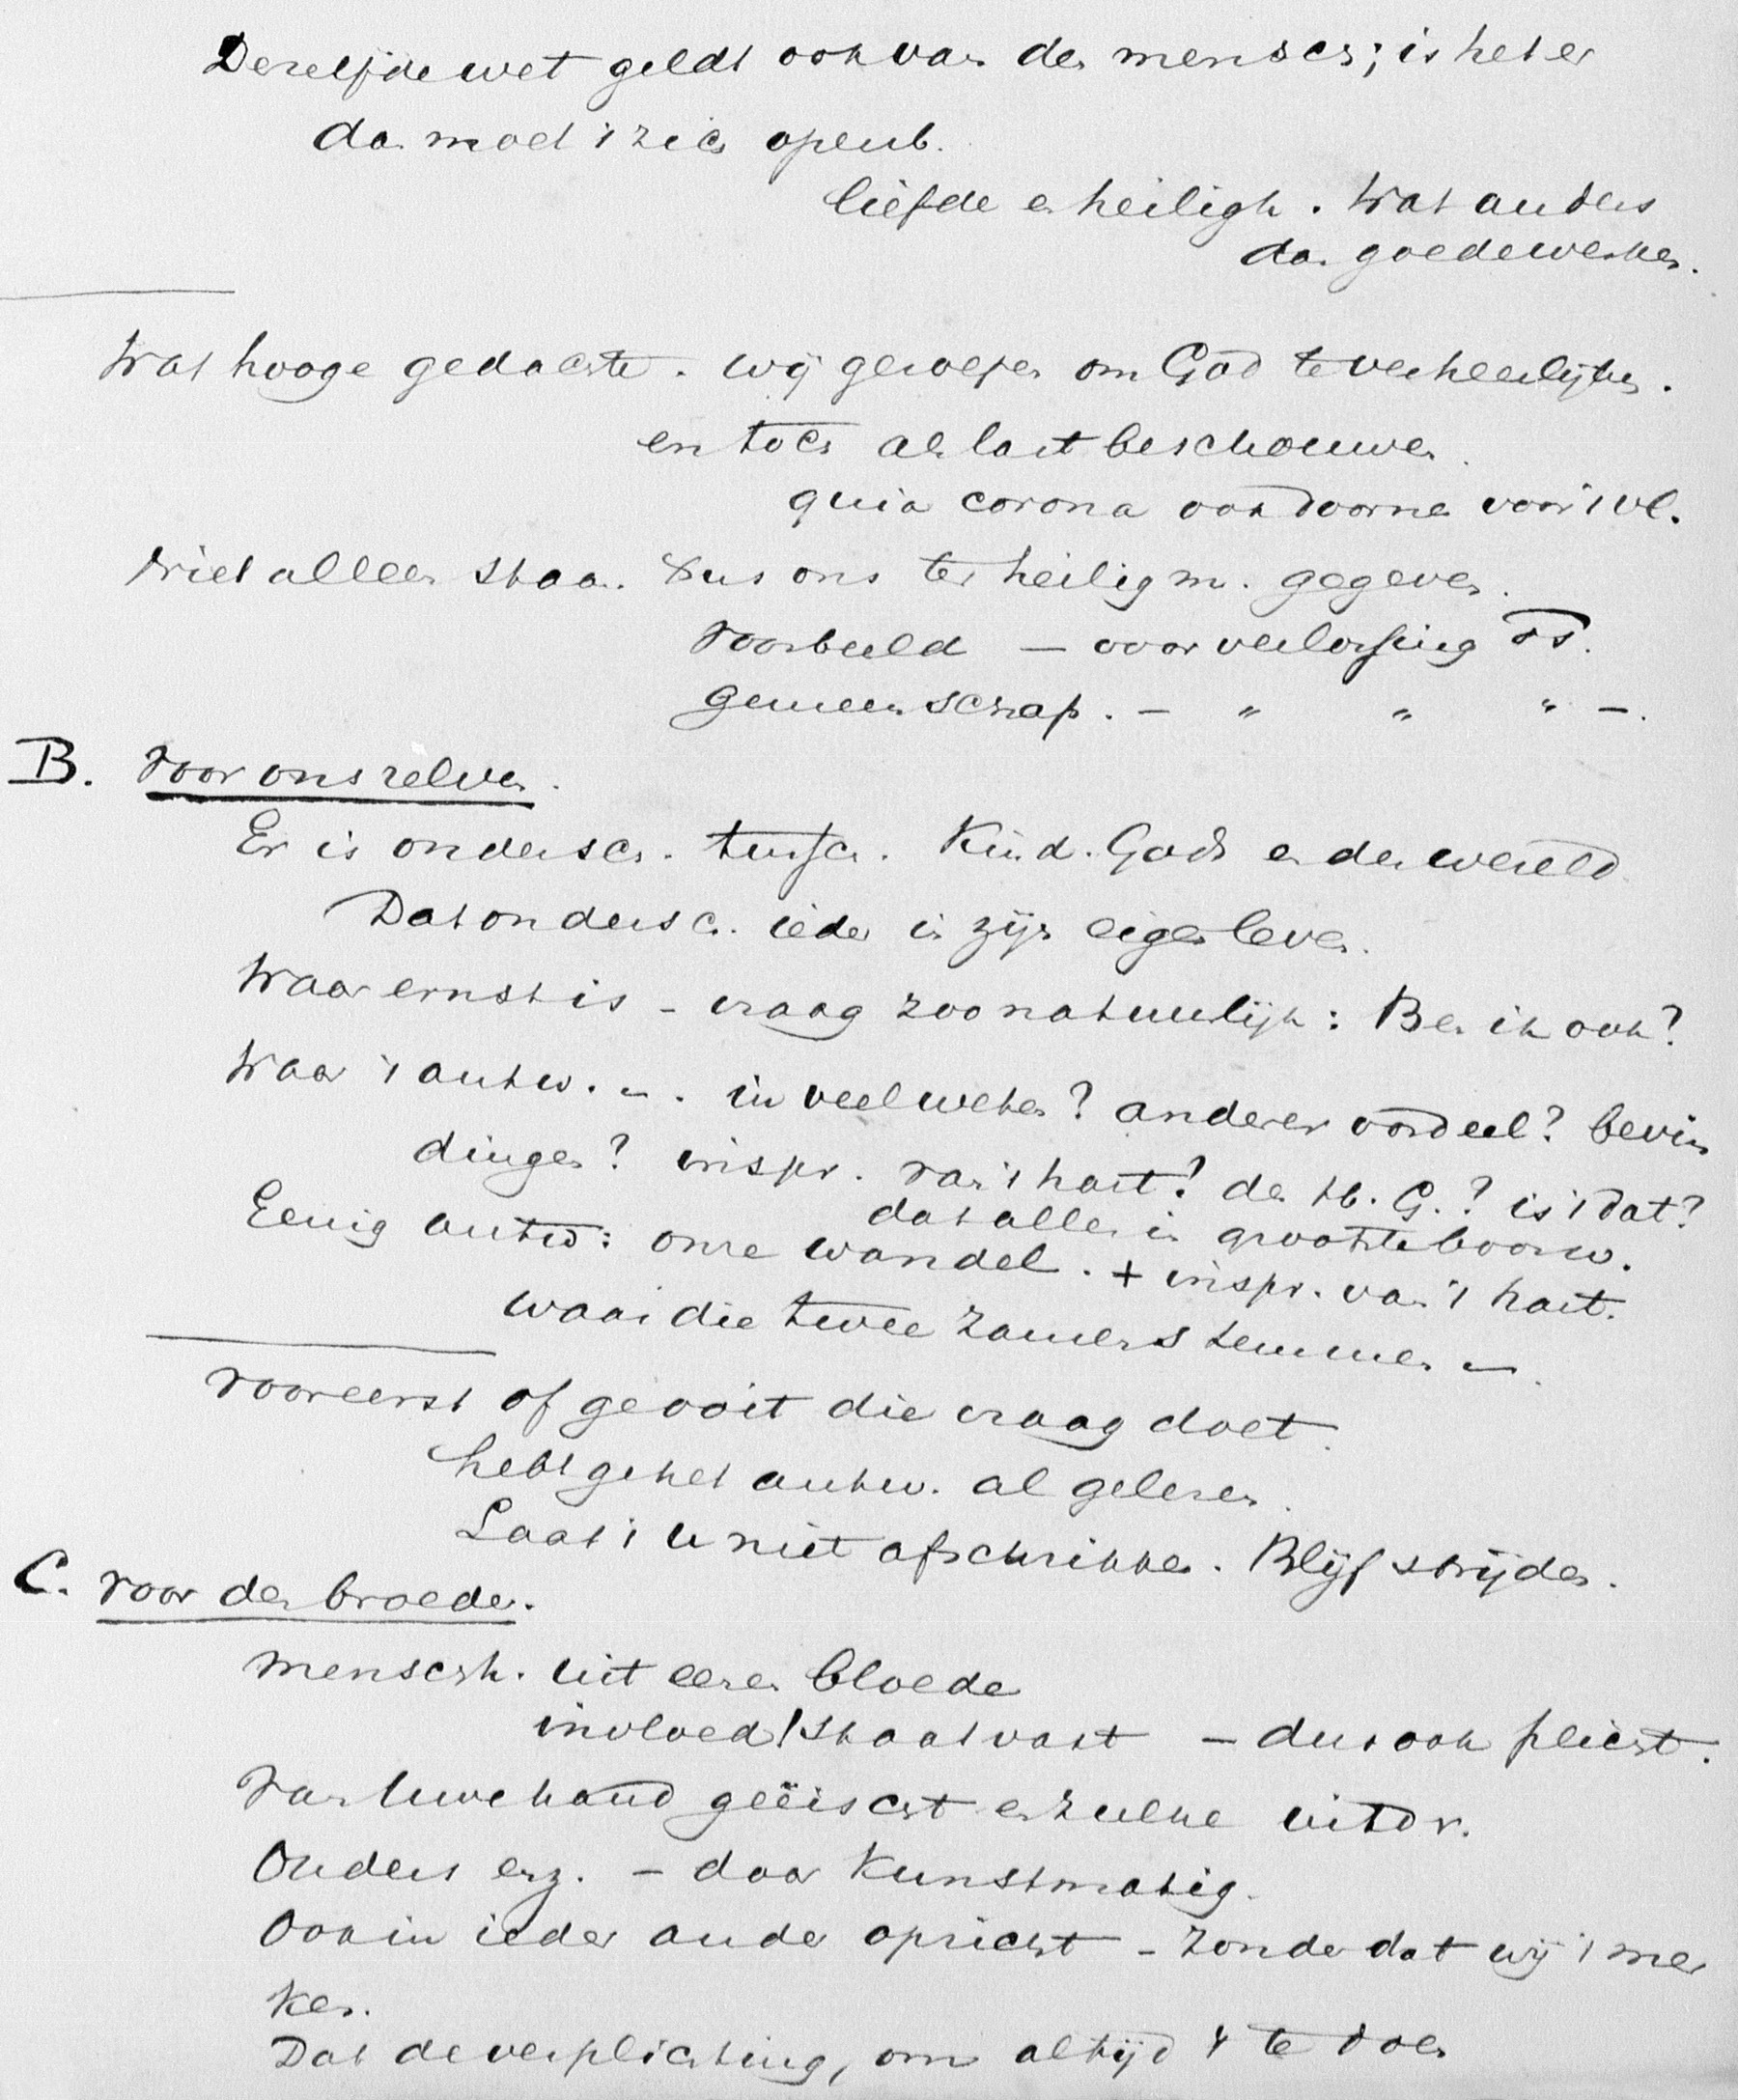 Dezelfde wet geldt ook van den mensch; is het er
dan moet 't zich openb.
liefde en heiligh. Wat anders
dan goede werken.
Wat hooge gedachte. Wij geroepen om God te verheerlijken.
en toch als last beschouwen.
quia corona ook doornen voor 't vl.
Niet alleen staan. Xus ons ter heiligm. gegeven.
Voorbeeld — voor verlossing
Gemeenschap. — " " " —.
B. Voor ons zelven.
Er is ondersch. tussch. Kind. Gods en der wereld
Dat ondersch. ieder in zijn eigen leven.
Waar ernst is - vraag zoo natuurlijk: Ben ik ook?
Waar 't antw. -. in veel weten? anderer oordeel? bevin
dingen? inspr. van 't hart? den H. G.? is 't dat?
dat alles in groote boosw.
Eenig antw: onze wandel. + inspr. van 't hart.
waar die twee zamenstemmen —.
Vooreerst of ge ooit die vraag doet.
hebt ge het antw. al gelezen.
Laat 't u niet afschrikken. Blijf strijden.
C. Voor den broeder.
Menschh. uit eenen bloede
invloed/staat vast — dus ook plicht.
Van Uwe hand geëischt en zulke uitdr.
Ouders enz. — daar Kunstmatig.
Ook in ieder ander opzicht - zonder dat wij 't mer
ken.
Dat de verplichting, om altijd 't te doen